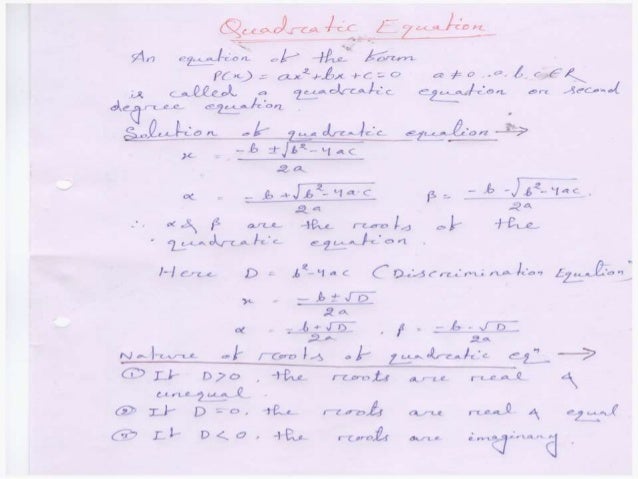 Quadratic Equation
An equation of the form
P(x) = ax²+bx+c=0 a≠0, a, b, c ∈ R
is called a quadratic equation or second
degree equation.
Solution of quadratic equation →
x = (-b ± √(b²-4ac))/2a
α = (-b+√(b²-4a·c))/2a β = (-b-√(b²-4ac))/2a.
∴ α & β are the roots of the
quadratic equation.
Here D = b²-4ac (Discrimination Equation)
x = (-b±√D)/2a
α = (-b+√D)/2a, β = (-b-√D)/2a
Nature of roots of quadratic eqⁿ →
① If D>0, the roots are real &
unequal.
② If D=0, the roots are real & equal
③ If D<0, the roots are imaginary.